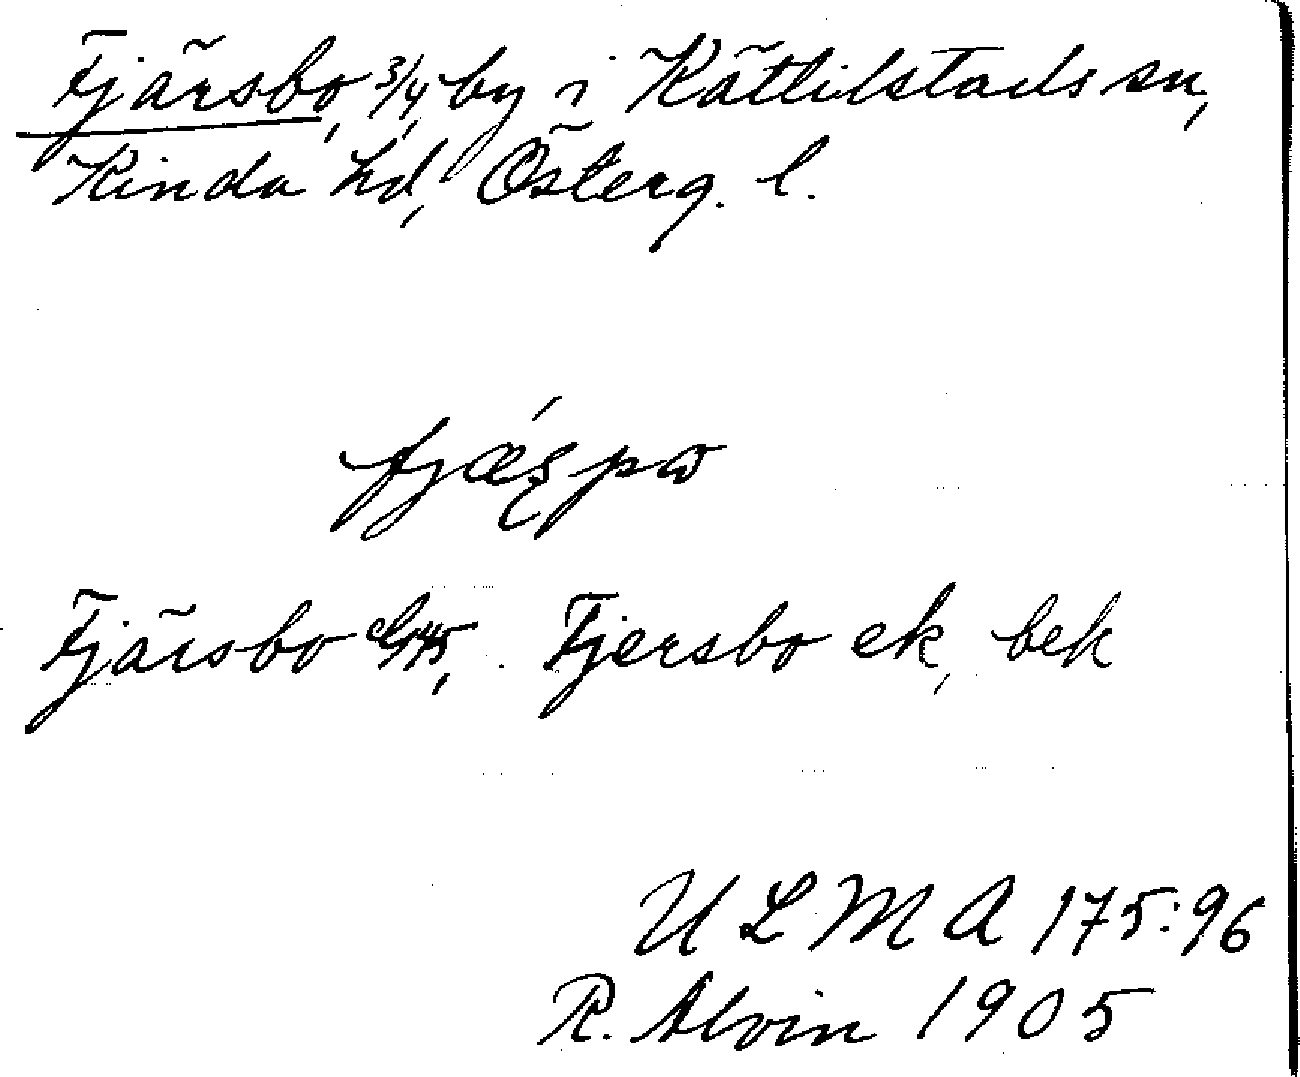 Fjärsbo, 3/4 by i Kättilstads sn,
Kinda hd, Österg. l.
Fjärsbo Fjersbo ek, bek
U L M A 175:96
R. Alvin 1905